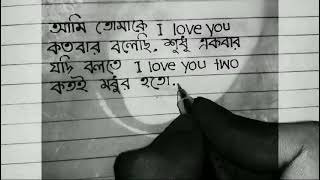 আমি তোমাকে I love you
কতবার বলেছি. শুধু একবার
যদি বলতে I love you two
কতই মধুর হতো..